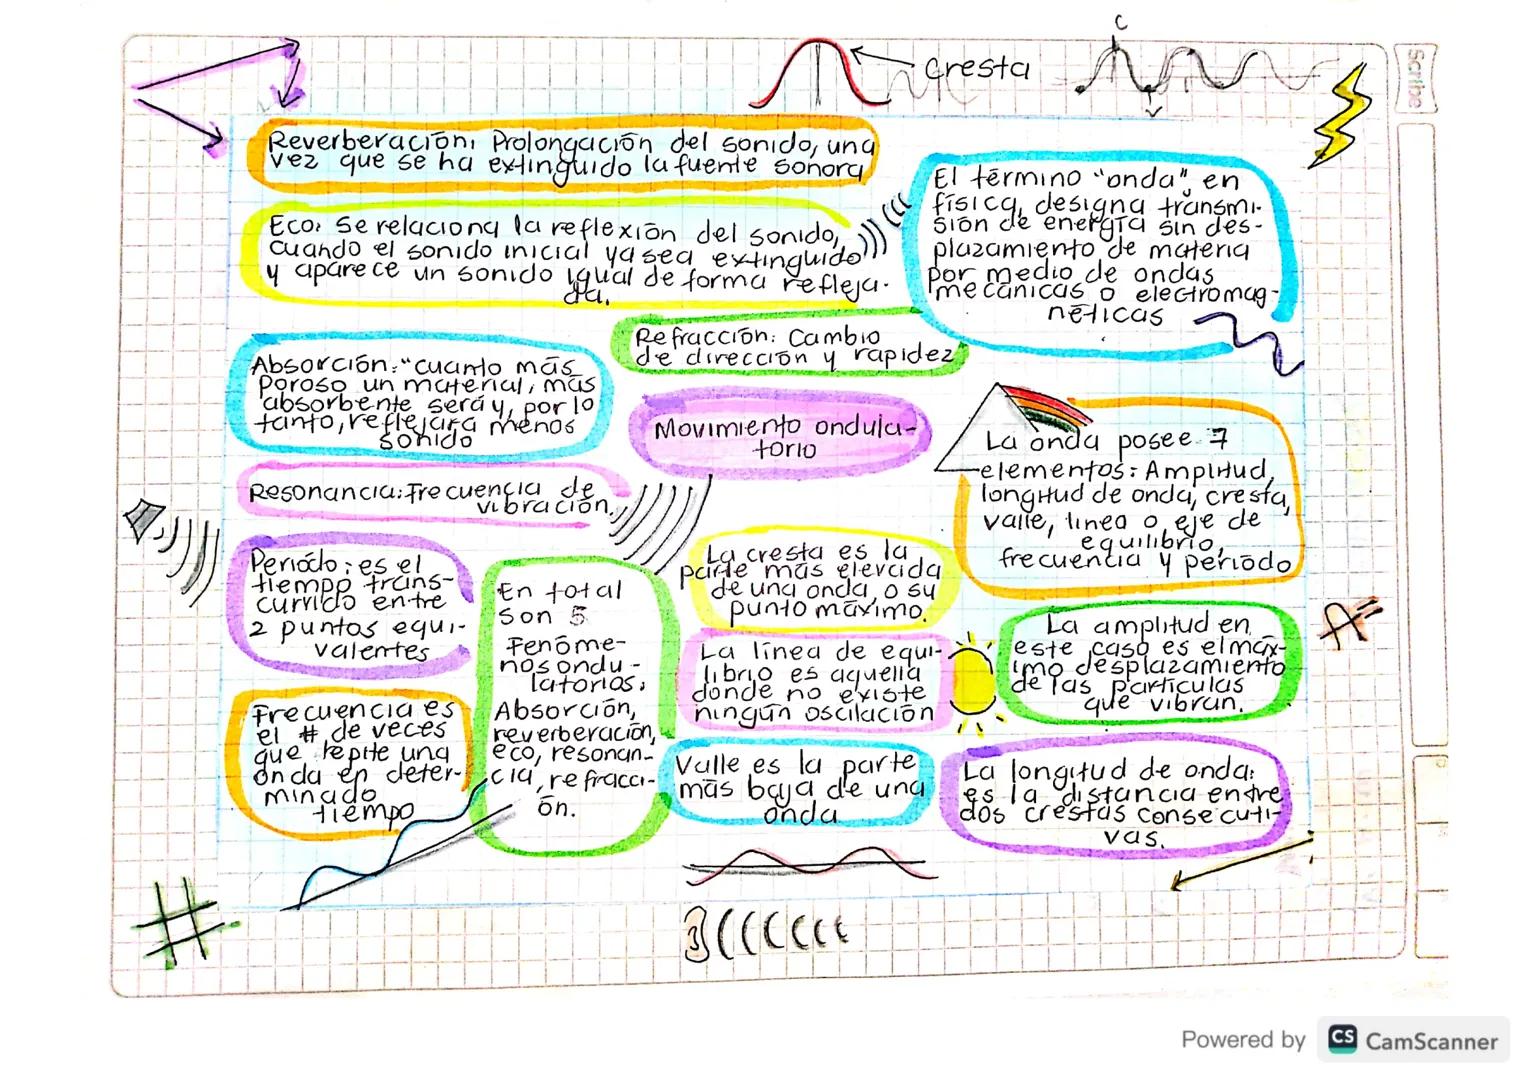 cresta
C
V
Scribe
Reverberación: Prolongación del sonido, una
vez que se ha extinguido la fuente sonora
Eco: Se relaciona la reflexión del sonido,
cuando el sonido inicial ya sea extinguido
y aparece un sonido igual de forma refleja-
da.
El término "onda", en
física, designa transmi-
sión de energía sin des-
plazamiento de materia
por medio de ondas
mecánicas o electromag-
néticas
Refracción: Cambio
de dirección y rapidez
Absorción: "cuanto más
poroso un material, más
absorbente será y, por lo
tanto, reflejará menos
sonido
Movimiento ondula-
torio
La onda posee 7
elementos: Amplitud,
longitud de onda, cresta,
valle, línea o eje de
equilibrio,
frecuencia y período
Resonancia: Frecuencia de
vibración.
Período: es el
tiempo trans-
currido entre
2 puntos equi-
valentes
En total
son 5
Fenóme-
nos ondu-
latorios:
Absorción,
reverberación,
eco, resonan-
cia, refracci-
ón.
La cresta es la
parte más elevada
de una onda, o su
punto máximo.
La línea de equi-
librio es aquella
donde no existe
ningún oscilación
La amplitud en
este caso es el máx-
imo desplazamiento
de las partículas
que vibran.
A=
Frecuencia es
el # de veces
que repite una
onda en deter-
minado
tiempo
Valle es la parte
más baja de una
onda
La longitud de onda:
es la distancia entre
dos crestas consecuti-
vas.
#
Powered by CS CamScanner